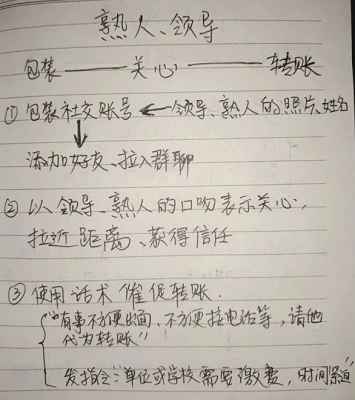 熟人、领导
包装——关心——转账
① 包装社交账号←领导、熟人的照片、姓名
添加好友、拉入群聊
② 以领导、熟人的口吻表示关心,
拉近距离、获得信任
③ 使用话术催促转账.
"有事不方便出面、不方便接电话等,请他
代为转账"
发指令:单位或学校需要缴费,时间紧迫"